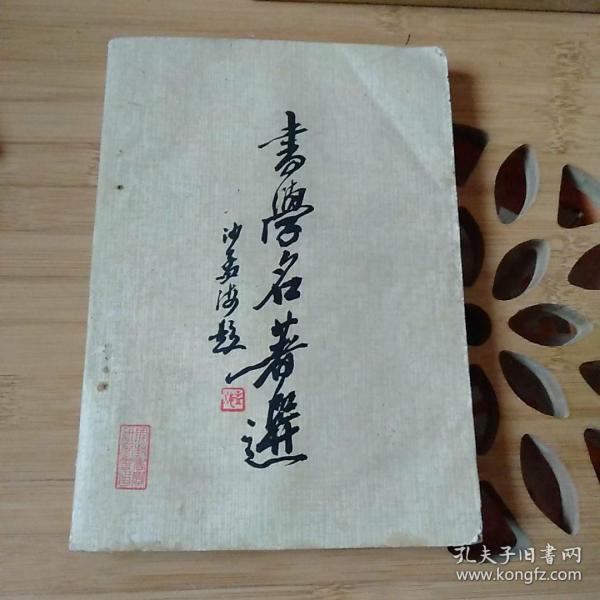 書學名著選
沙孟海題
孔夫子旧書网
www.kongfz.com